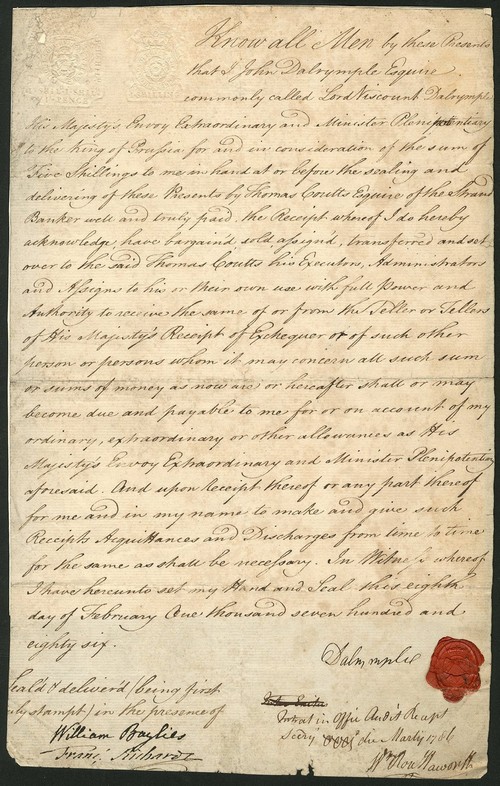 Know all Men by these Presents
that I John Dalrymple Esquire
commonly called Lord Viscount Dalrymple
His Majesty's Envoy Extraordinary and Minister Plenipotentiary
to the King of Prussia for and in consideration of the sum of
Five Shillings to me in hand at or before the sealing and
delivering of these Presents by Thomas Coutts Esquire of the Strand
Banker well and truly paid, the Receipt whereof I do hereby
acknowledge, have bargain'd, sold, assign'd, transferred and set
over to the said Thomas Coutts his Executors, Administrators
and Assigns to his or their own use with full Power and
Authority to receive the same of or from the Teller or Tellers
of His Majesty's Receipt of Exchequer or of such other
person or persons whom it may concern all such sum
or sums of money as now are or hereafter shall or may
become due and payable to me for or on account of my
ordinary, extraordinary or other allowances as His
Majesty's Envoy Extraordinary and Minister Plenipotentiary
aforesaid. And upon Receipt thereof or any part thereof
for me and in my name to make and give such
Receipts Acquittances and Discharges from time to time
for the same as shall be necessary. In Witness whereof
I have hereunto set my Hand and Seal this eighth
day of February One thousand seven hundred and
eighty six.
Dalrymple
Seal'd & deliver'd (being first
duly stampt) in the presence of
William Baylies
Franc. Richards
in Offic
die Martij 1786